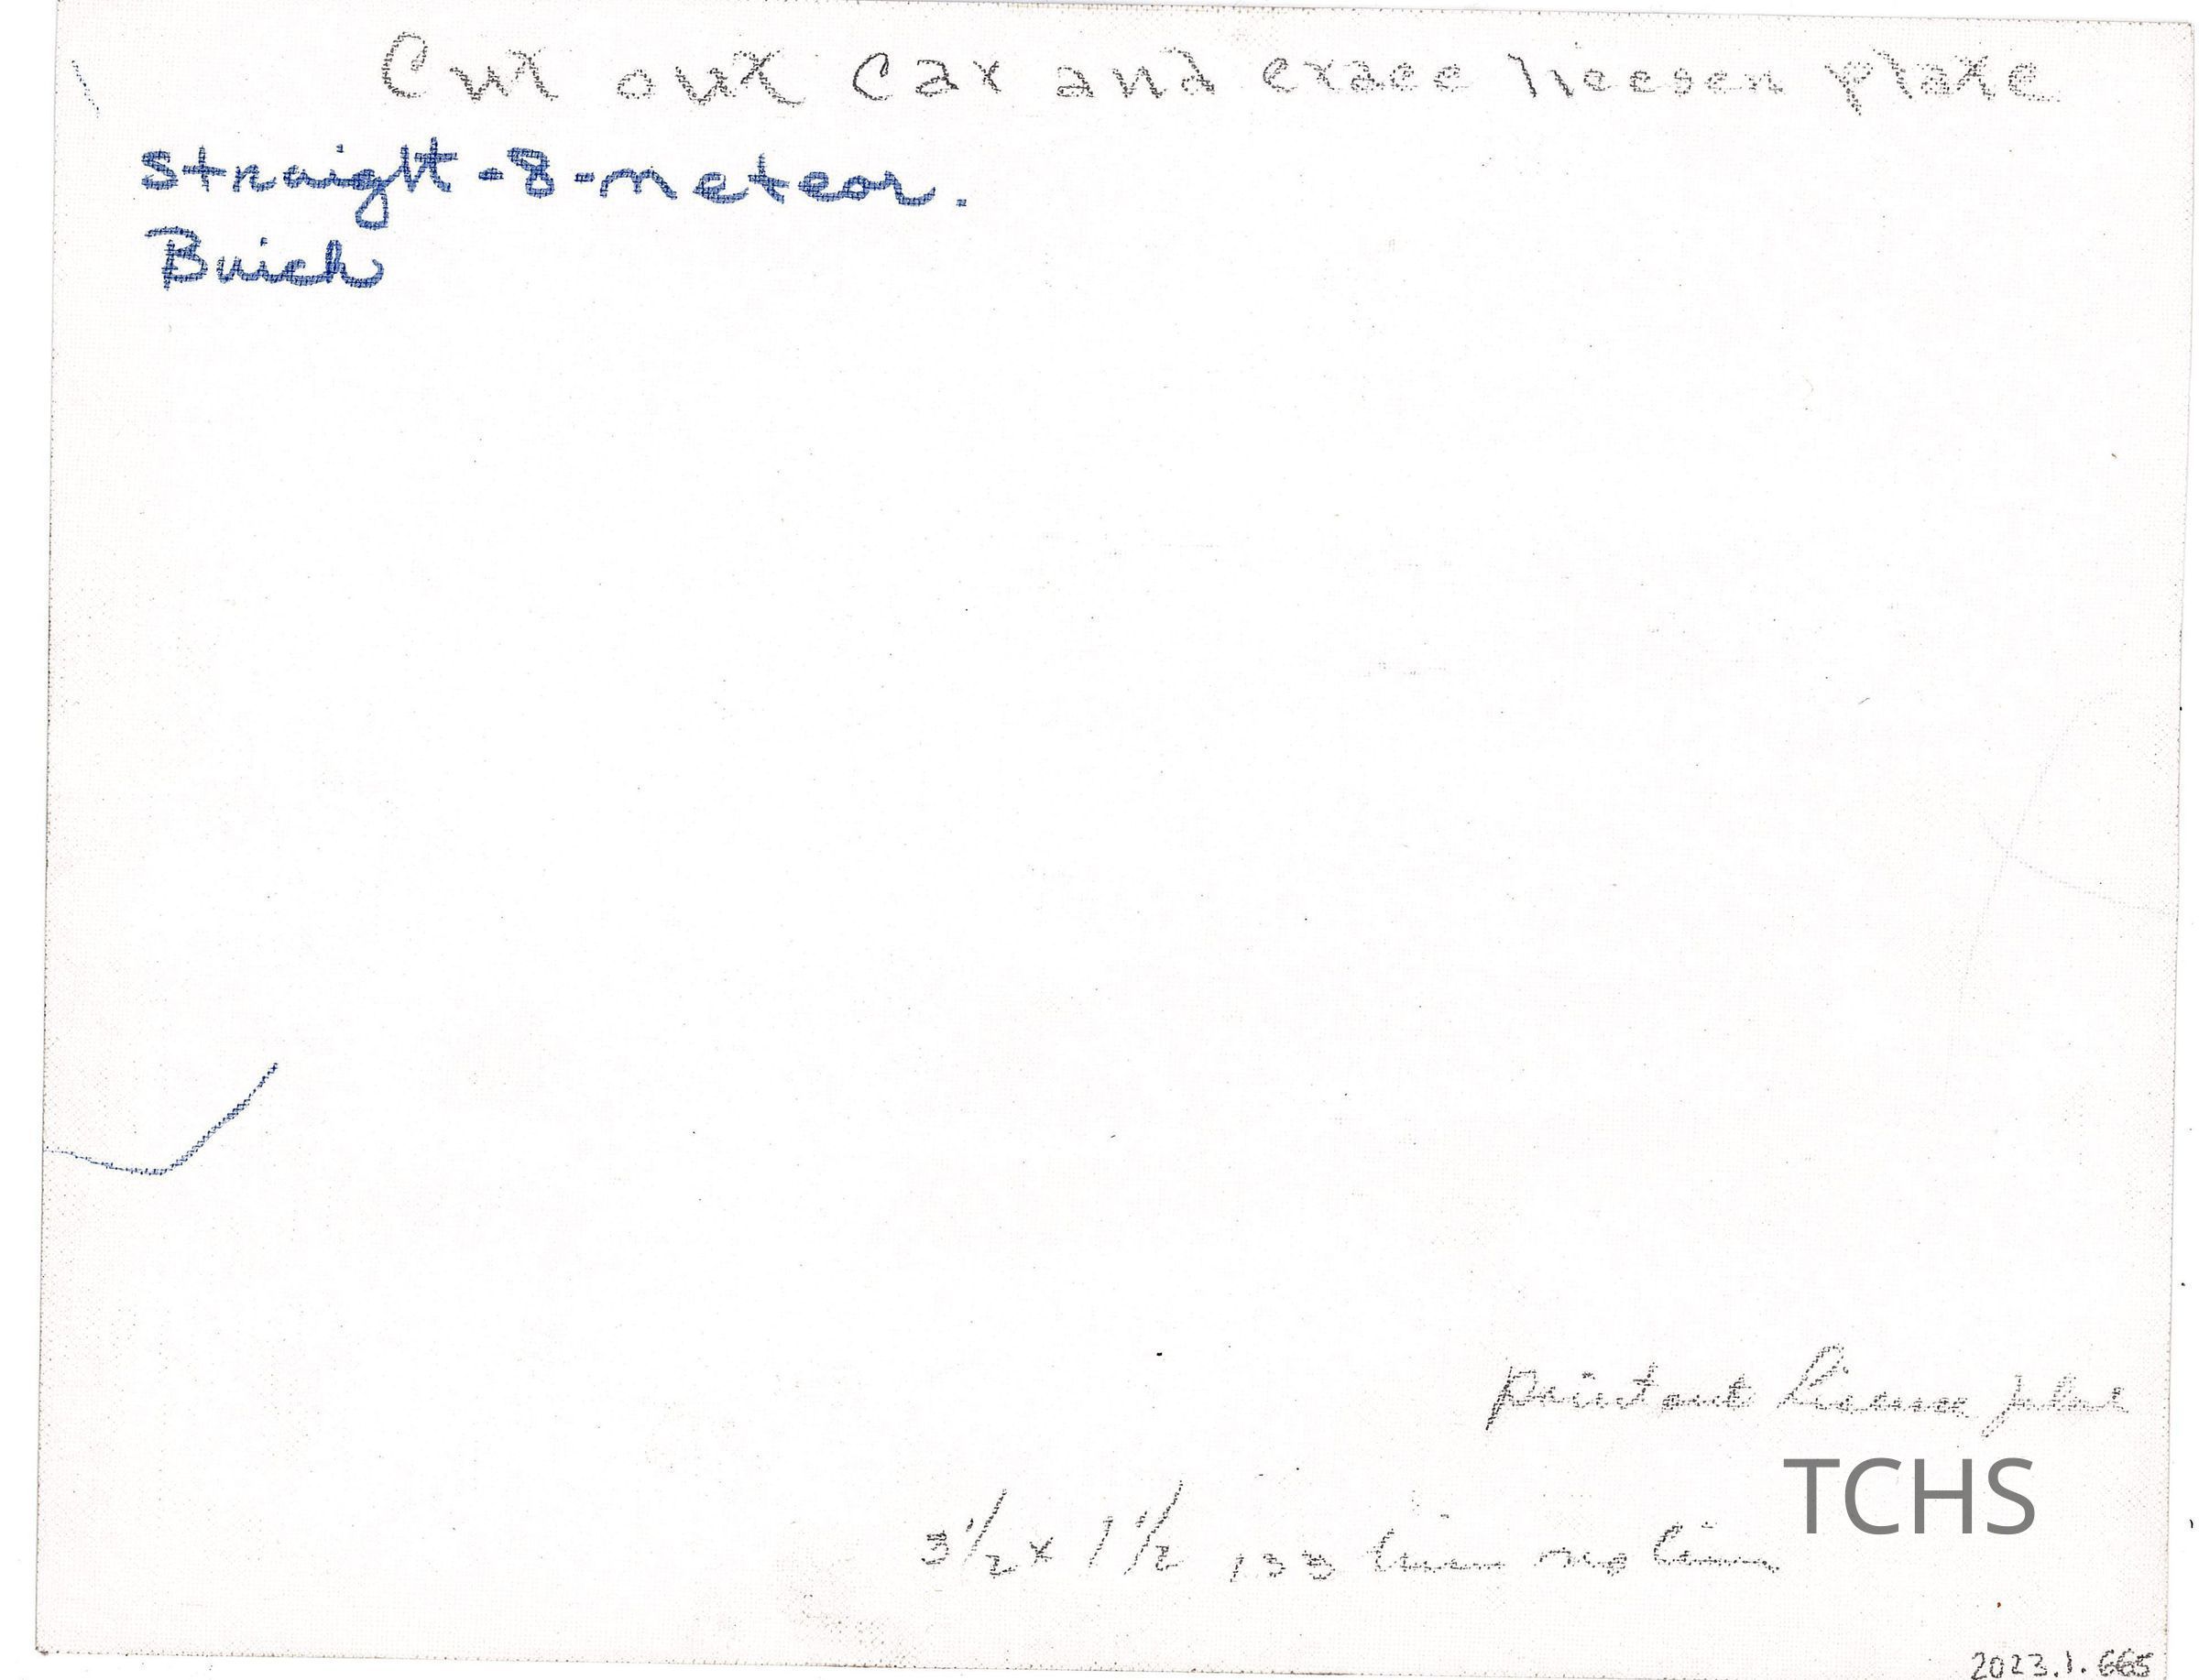 Cut out Car and erace liecsen plate
straight-8-meteor.
Buick
paint out license plate
TCHS
3 1/2 x 1 1/2 133 line no line
2023.1.665